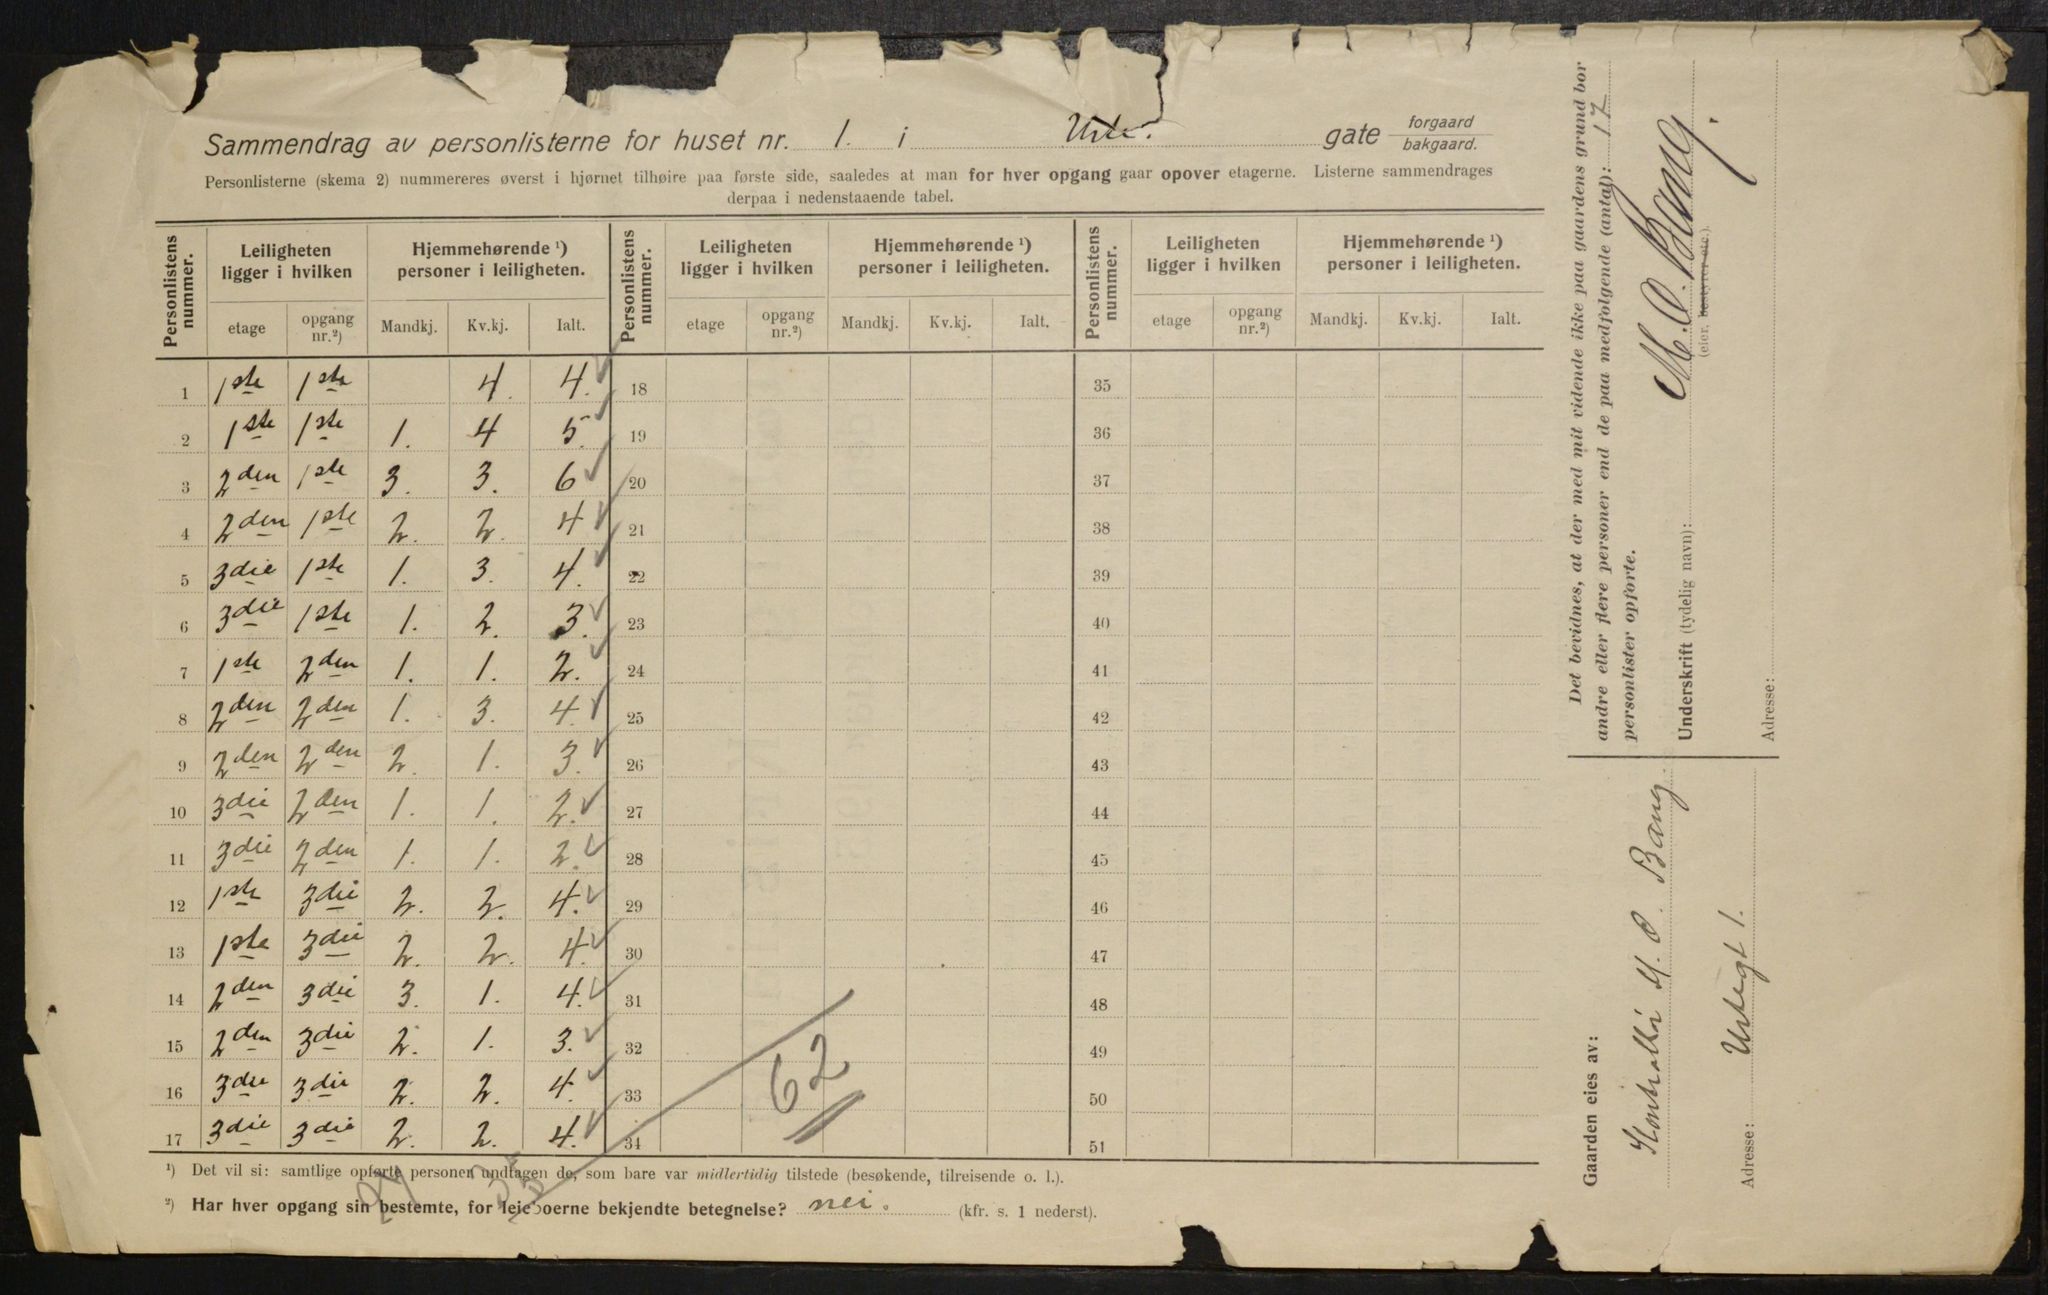 Sammendrag av personlisterne for huset nr. 1. i Urte. gate forgaard bakgaard.
Personlisterne (skema 2) nummereres øverst i hjørnet tilhøire paa første side, saaledes at man for hver opgang gaar opover etagerne. Listerne sammendrages
derpaa i nedenstaaende tabel.
Personlistens nummer. Leiligheten ligger i hvilken Hjemmehørende ¹) personer i leiligheten. Personlistens nummer. Leiligheten ligger i hvilken Hjemmehørende ¹) personer i leiligheten. Personlistens nummer. Leiligheten ligger i hvilken Hjemmehørende ¹) personer i leiligheten.
etage opgang nr.²) Mandkj. Kv.kj. Ialt. etage opgang nr.²) Mandkj. Kv.kj. Ialt. etage opgang nr.²) Mandkj. Kv.kj. Ialt.
1 1ste 1ste 4. 4. 18 35
2 1ste 1ste 1. 4 5. 19 36
3 2den 1ste 3. 3. 6 20 37
4 2den 1ste 2. 2. 4 21 38
5 3die 1ste 1. 3. 4. 22 39
6 3die 1ste 1. 2. 3. 23 40
7 1ste 2den 1. 1. 2. 24 41
8 2den 2den 1. 3. 4. 25 42
9 2den 2den 2. 1. 3. 26 43
10 3die 2den 1. 1. 2. 27 44
11 3die 2den 1. 1. 2. 28 45
12 1ste 3die 2. 2. 4. 29 46
13 1ste 3die 2. 2. 4. 30 47
14 2den 3die 3. 1. 4. 31 48
15 2den 3die 2. 1. 3. 32 49
16 3die 3die 2. 2. 4. 33 50
17 3die 3die 2. 2. 4. 34 51
62
¹) Det vil si: samtlige opførte personer undtagen de, som bare var midlertidig tilstede (besøkende, tilreisende o. l.).
²) Har hver opgang sin bestemte, for leieboerne bekjendte betegnelse? nei. (kfr. s. 1 nederst).
Det bevidnes, at der med mit vidende ikke paa gaardens grund bor
andre eller flere personer end de paa medfølgende (antal): 17
personlister opførte.
Underskrift (tydelig navn): M. O. Bang.
(eier, bestyrer etc.).
Adresse:
Gaarden eies av:
Kontrollør M. O. Bang.
Adresse: Urtegt 1.